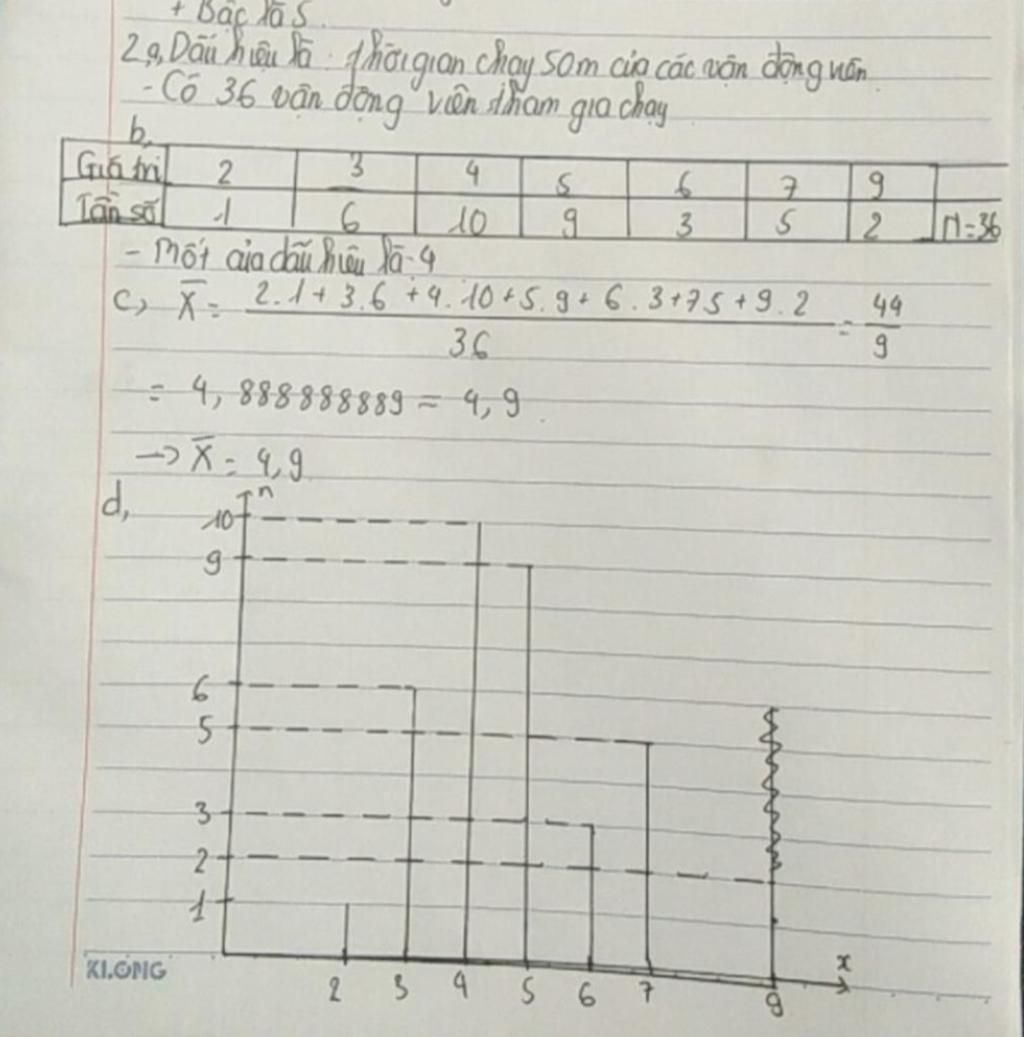 + Bậc là 5.
2,a, Dấu hiệu là thời gian chạy 50m của các vận động viên
- Có 36 vận động viên tham gia chạy
b,
Giá trị 2 3 4 5 6 7 9
Tần số 1 6 10 9 3 5 2 N=36
- Mốt của dấu hiệu là 4
c, X̄ = 2.1 + 3.6 + 4.10 + 5.9 + 6.3 + 75 + 9.2 / 36 = 44 / 9
= 4,888888889 = 4,9
→ X̄ = 4,9
d,
n
10
9
6
5
3
2
1
x
2 3 4 5 6 7 9
KLONG